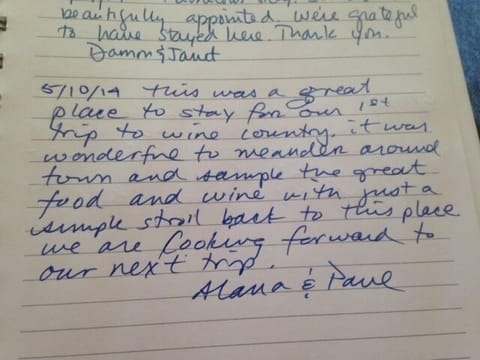 beautifully appointed. We're grateful
to have stayed here. Thank you.
Damon & Janet
5/10/14 This was a great
place to stay for our 1st
trip to wine country. it was
wonderful to meander around
town and sample the great
food and wine with just a
simple stroll back to this place
we are looking forward to
our next trip.
Alana & Paul